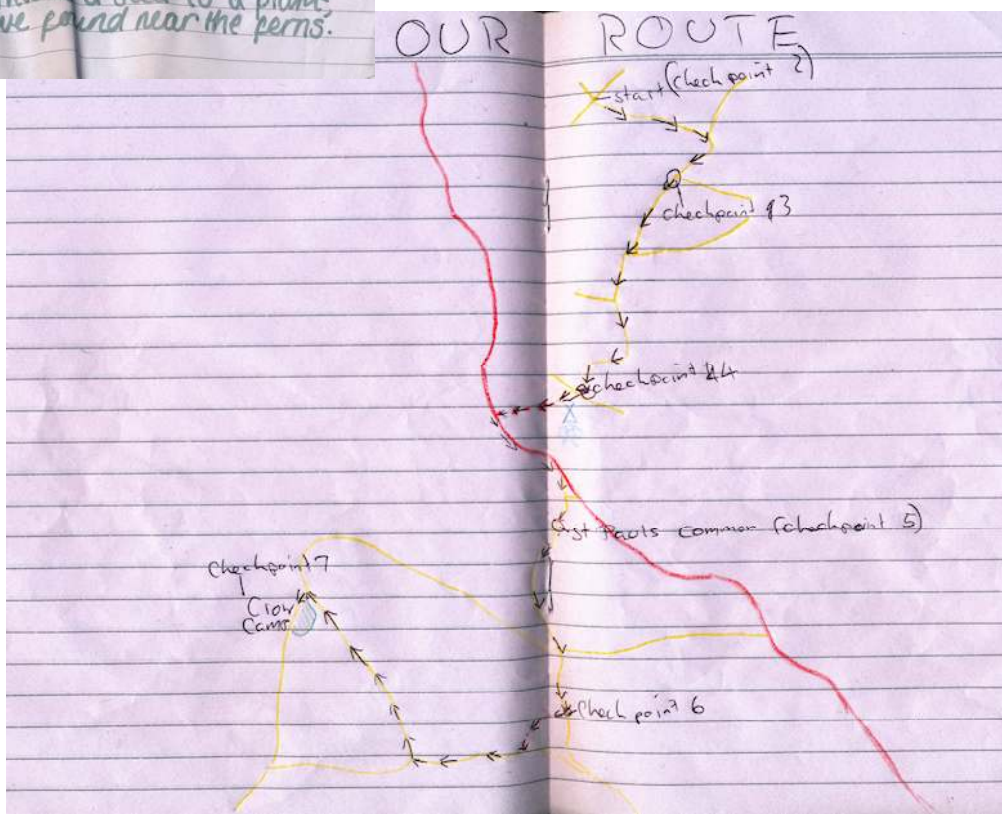 to a plant
we found near the ferns.
OUR ROUTE
start (Checkpoint 2)
Checkpoint 3
Checkpoint 4
Pauls common (checkpoint 5)
Checkpoint 7
Crow
Camp
Check point 6